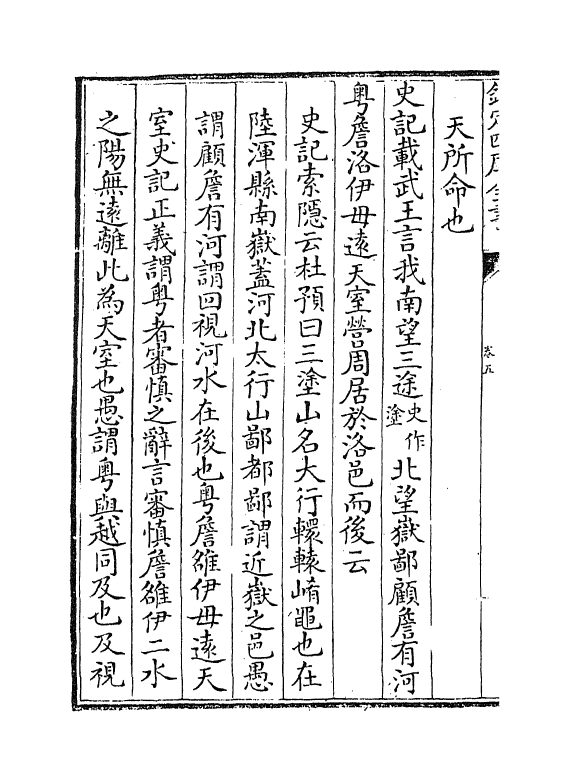 欽定四庫全書
卷五
天所命也
史記載武王言我南望三途史作塗北望嶽鄙顧詹有河
粤詹洛伊毋遠天室營周居於洛邑而後云
史記索隱云杜預曰三塗山名大行轘轅崤黽也在
陸渾縣南嶽蓋河北太行山鄙都鄙謂近嶽之邑愚
謂顧詹有河謂回視河水在後也粤詹雒伊毋遠天
室史記正義謂粤者審慎之辭言審慎詹雒伊二水
之陽無遠離此為天室也愚謂粤與越同及也及視